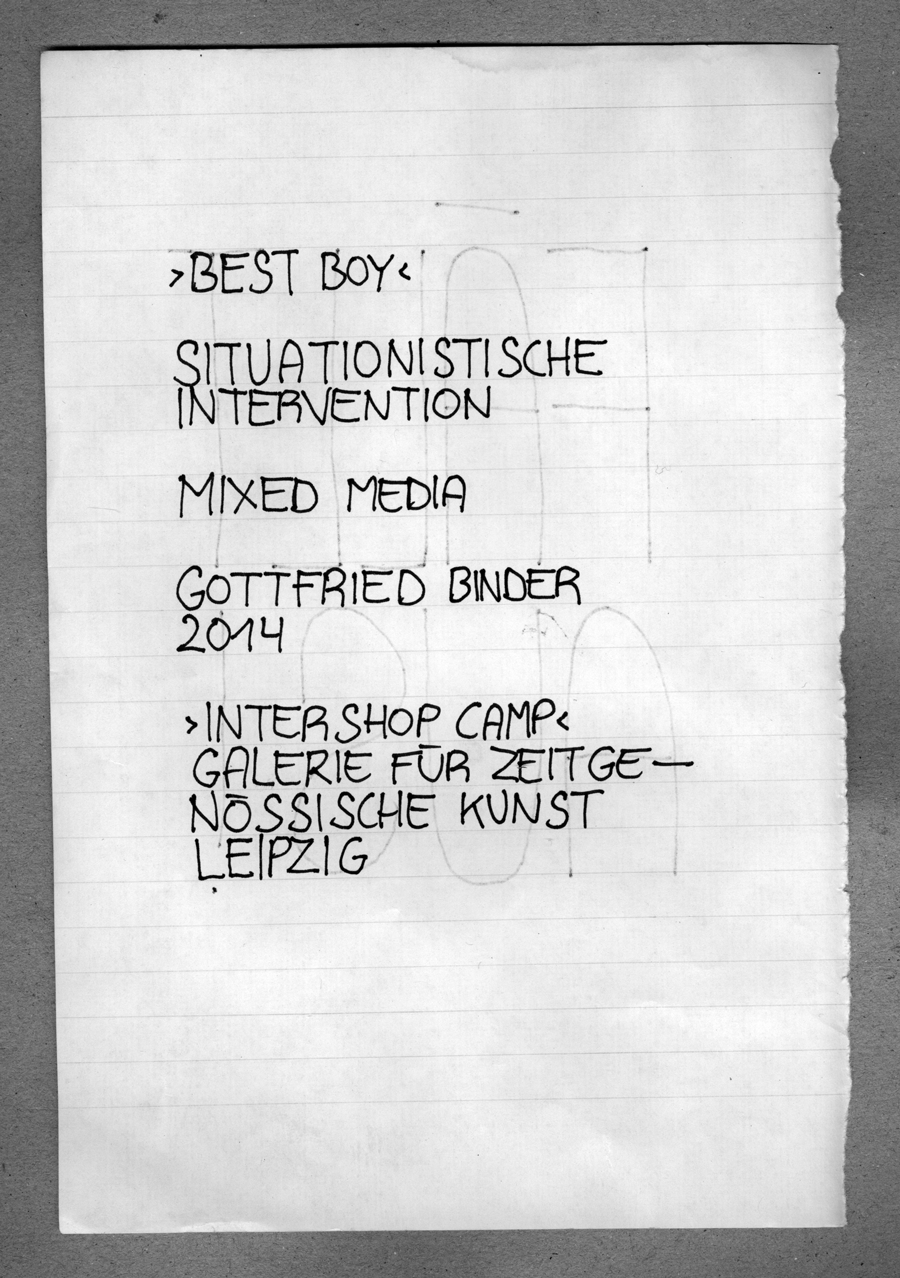 ›BEST BOY‹
SITUATIONISTISCHE
INTERVENTION
MIXED MEDIA
GOTTFRIED BINDER
2014
›INTERSHOP CAMP‹
GALERIE FÜR ZEITGE—
NÖSSISCHE KUNST
LEIPZIG